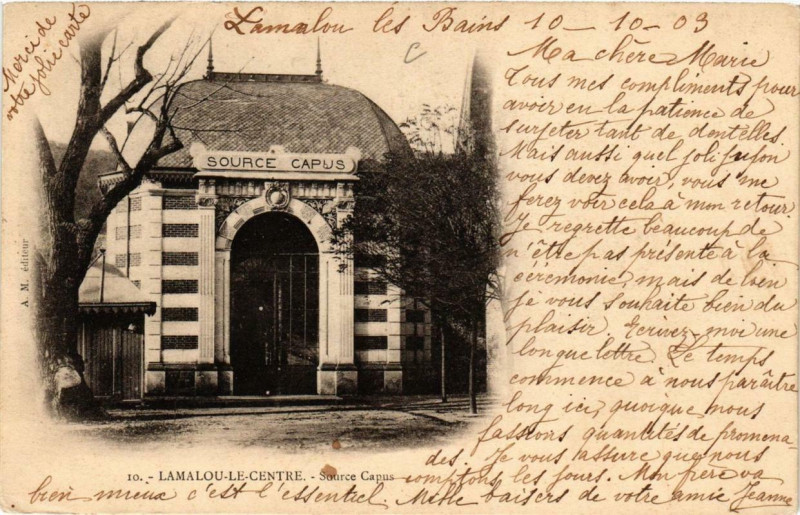 Merci de
votre jolie carte
Lamalou les Bains 10-10-03
Ma chère Marie
Tous mes compliments pour
avoir eu la patience de
surjeter tant de dentelles.
Mais aussi quel joli jupon
vous devez avoir, vous me
ferez voir cela à mon retour.
Je regrette beaucoup de
n'être pas présente à la
ceremonie, mais de loin
je vous souhaite bien du
plaisir. Ecrivez-moi une
longue lettre. Le temps
commence à nous paraître
long ici, quoique nous
fassions quantités de promena-
des. Je vous assure que nous
comptons les jours. Mon père va
bien mieux c'est l'essentiel. Mille baisers de votre amie Jeanne
SOURCE CAPUS
A. M. éditeur
10. - LAMALOU-LE-CENTRE. - Source Capus